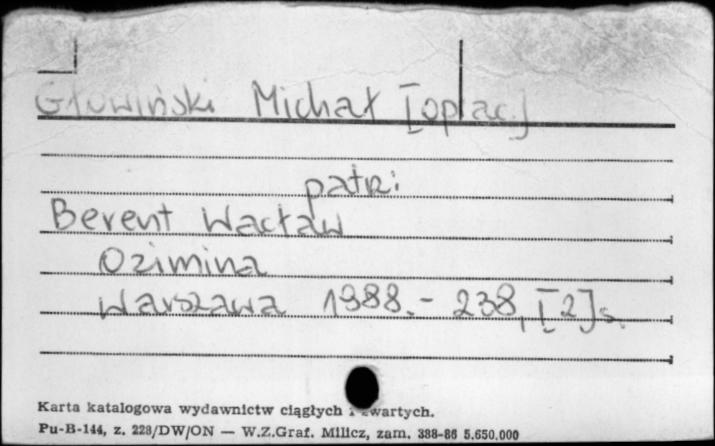 Głowiński Michał [oprac.]
patrz:
Berent Wacław
Ozimina
Warszawa 1988.- 238, [2] s.
Karta katalogowa wydawnictw ciągłych i zwartych.
Pu-B-144, z. 228/DW/ON — W.Z.Graf. Milicz, zam. 388-86 5.650.000